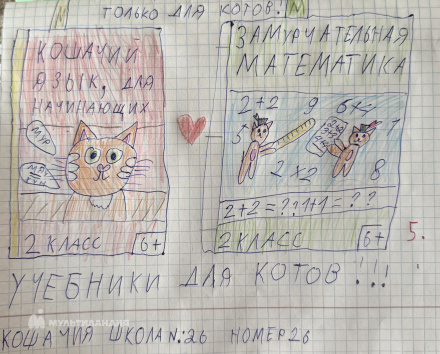 М ТОЛЬКО ДЛЯ КОТОВ! М
КОШАЧИЙ
ЯЗЫК, ДЛЯ
НАЧИНАЮЩИХ
МУР
2 КЛАСС 6+
ЗАМУРЧАТЕЛЬНАЯ
МАТЕМАТИКА
2+2 9 6×4
5 1
2×2 8
2+2=??1+1=??
2 КЛАСС 6+
5.
УЧЕБНИКИ ДЛЯ КОТОВ!!!
МУЛЬТИЛАНДИЯ
КОШАЧИЯ ШКОЛА №:26 НОМЕР 26